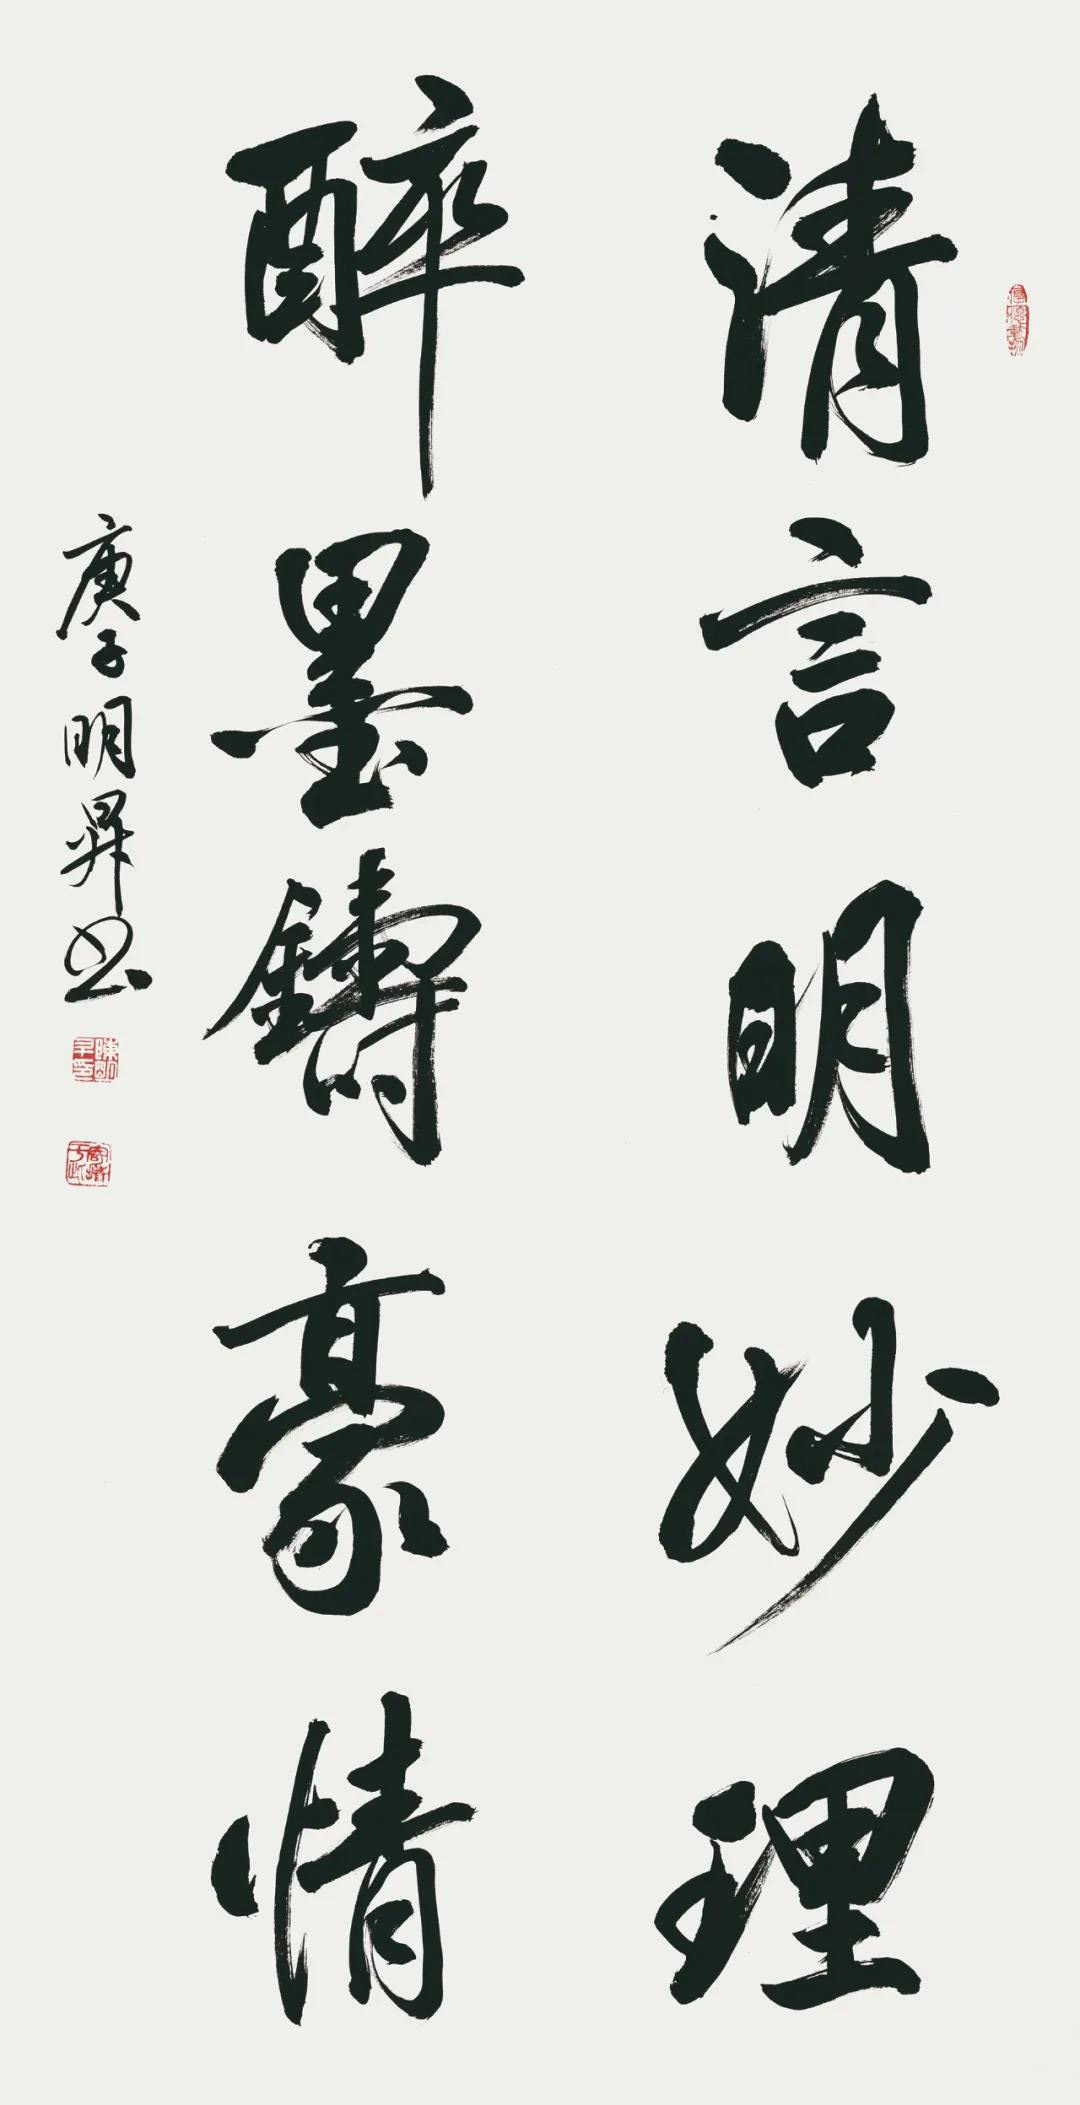 清言明妙理
醉墨鑄豪情
庚子明昇书